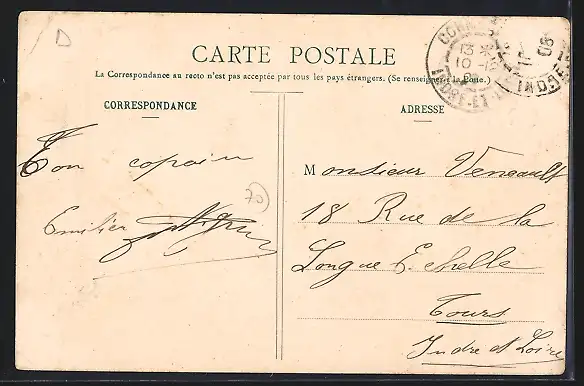 D
CARTE POSTALE
La Correspondance au recto n'est pas acceptée par tous les pays étrangers. (Se renseigner à la Poste.)
CORRESPONDANCE
ADRESSE
13
10-12
08
INDRE-ET-L
Ton copain
Emilier
70
Monsieur Venault
18 Rue de la
Longue Echelle
Tours
Indre et Loire